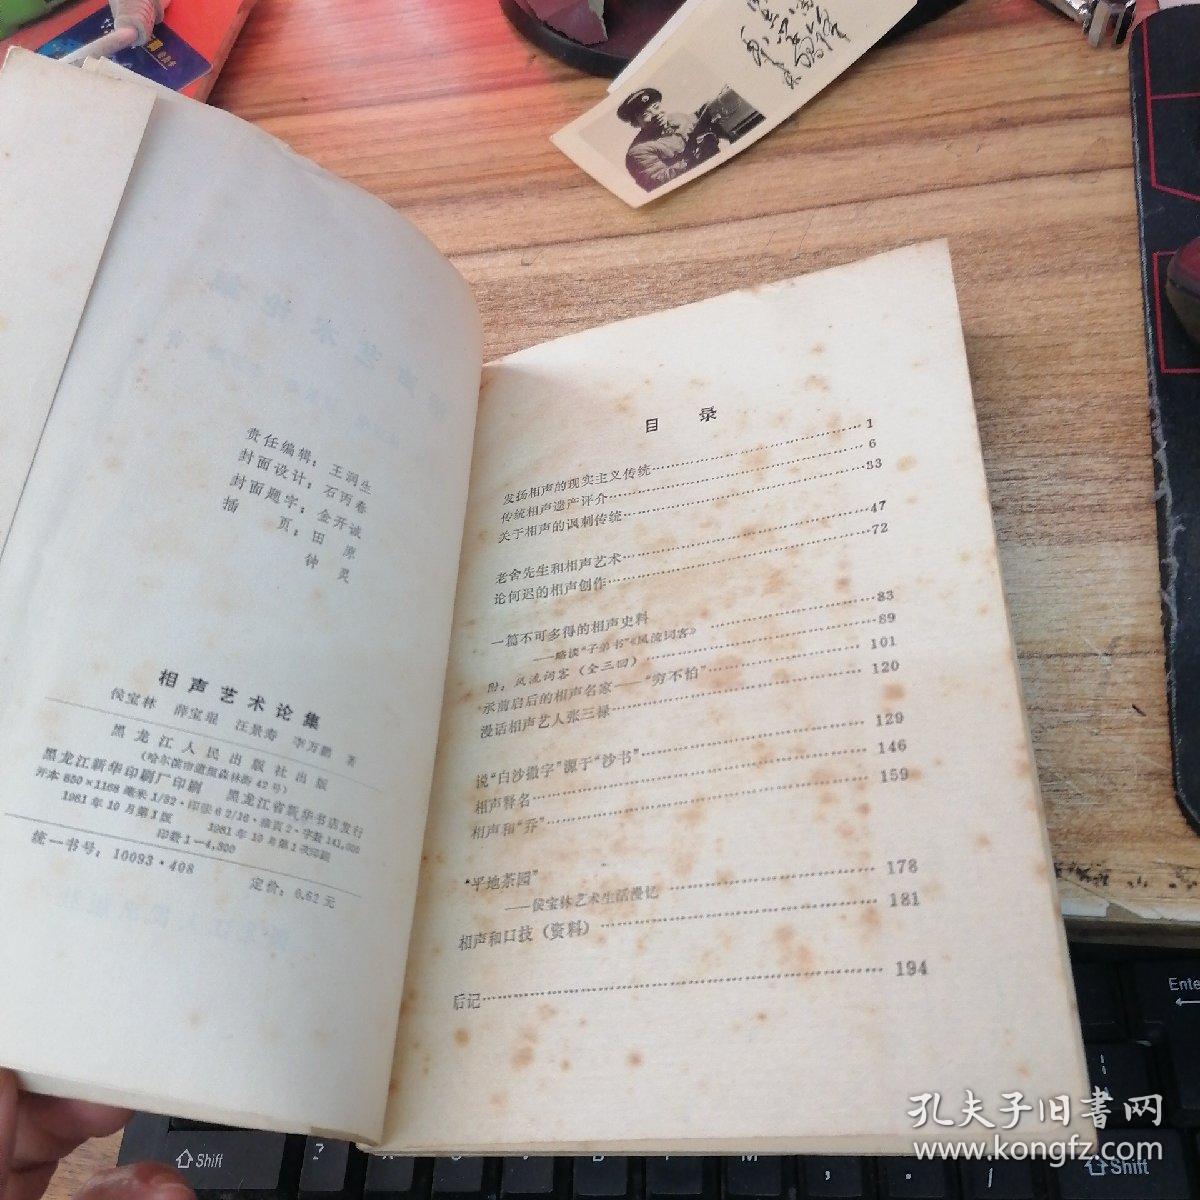 责任编辑：王润生
封面设计：石丙春
封面题字：金开诚
插　　页：田　原
钟　灵
相声艺术论集
侯宝林　薛宝琨　汪景寿　李万鹏　著
黑龙江人民出版社出版
（哈尔滨市道里森林街42号）
黑龙江新华印刷厂印刷　黑龙江省新华书店发行
开本 850×1168 毫米 1/32·印张 6 2/16·插页 2·字数 141,000
1981年10月第1版　1981年10月第1次印刷
印数 1—4,300
统一书号：10093·408　定价：0.62 元
目　录
发扬相声的现实主义传统……1
传统相声遗产评介……6
关于相声的讽刺传统……33
老舍先生和相声艺术……47
论何迟的相声创作……72
一篇不可多得的相声史料
——略谈“子弟书”《风流词客》……83
附：风流词客（全三回）……89
承前启后的相声名家——“穷不怕”……101
漫话相声艺人张三禄……120
说“白沙撒字”源于“沙书”……129
相声释名……146
相声和“乔”……159
“平地茶园”
——侯宝林艺术生活漫记……178
相声和口技（资料）……181
后记……194
Enter
Shift
Z
M
Shift
孔夫子旧书网
www.kongfz.com